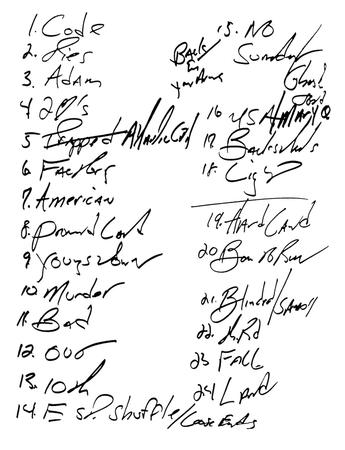 1. Code
2. Ties
3. Adam
4 2♥'s
5 Trapped Atlantic City
6 Factory
7. American
8. Promised Land
9 Youngstown
10 Murder
11. Bad
12. Out
13. 10th
14. E St. Shuffle/Loose Ends
Back
in
your Arms
15. No
Surrender
Ghost
16 USA Mary Q
17. Backstreets
18. Light
19. Hard Land
20 Born to Run
21. Blinded/Sandy
22.
23 Fall
24 Land